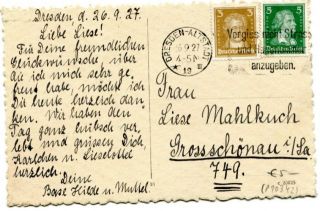 Dresden d. 26.9.27.
Liebe Liese!
Für Deine freundlichen
über
die ich mich sehr ge-
freut habe, möchte ich
Dir heute herzlich dan-
ken. Wir haben den
Tag ganz hübsch ver-
lebt und grüssen Dich,
Karlchen u. Lieselottel
herzlich.
Deine
Base Hilde u. Muttel.
DRESDEN-ALTST.
9.27
3
5
Deutsches Reich
Deutsches Reich
Vergiss nicht
anzugeben.
Frau
Liese Mahlkuch
Grosschönau i/Sa
749.
€5-